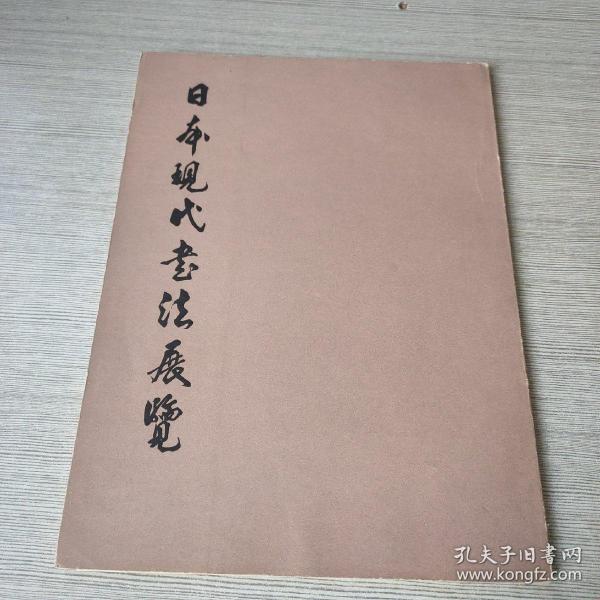 日本現代書法展覽
孔夫子旧書网
www.kongfz.com